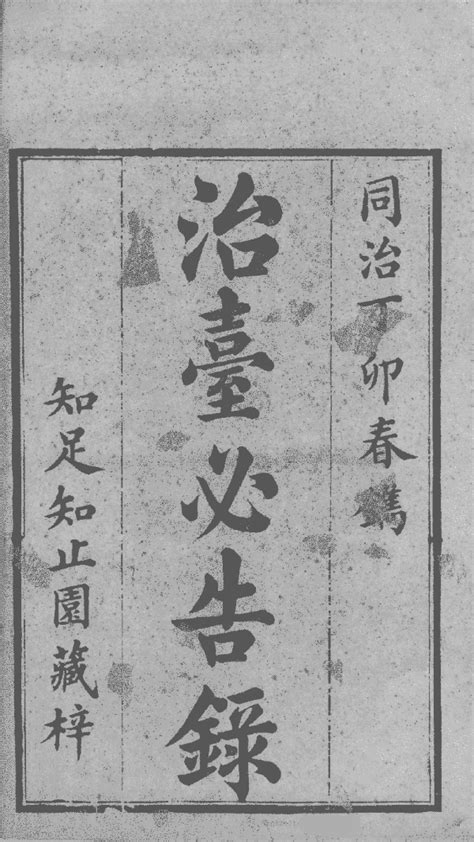 同治丁卯春鐫
治臺必告錄
知足知止園藏梓